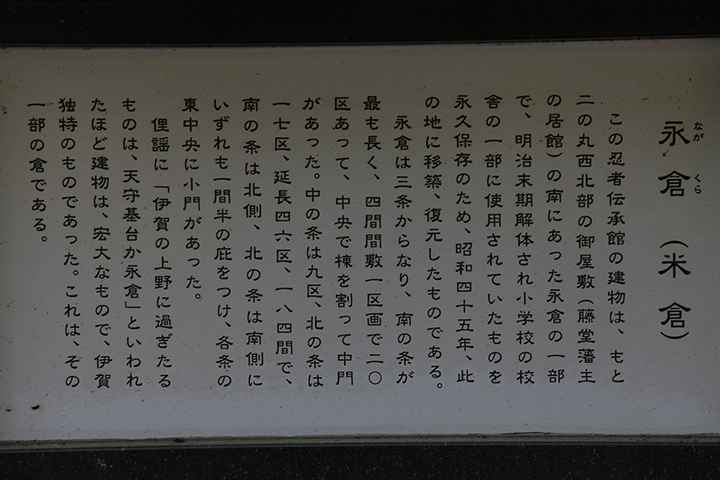 永倉(米倉)
ながくら
この忍者伝承館の建物は、もと
二の丸西北部の御屋敷(藤堂藩主
の居館)の南にあった永倉の一部
で、明治末期解体され小学校の校
舎の一部に使用されていたものを
永久保存のため、昭和四十五年、此
の地に移築、復元したものである。
永倉は三条からなり、南の条が
最も長く、四間間敷一区画で二〇
区あって、中央で棟を割って中門
があった。中の条は九区、北の条は
一七区、延長四六区、一八四間で、
南の条は北側、北の条は南側に
いずれも一間半の庇をつけ、各条の
東中央に小門があった。
俚謡に「伊賀の上野に過ぎたる
ものは、天守基台か永倉」といわれ
たほど建物は、宏大なもので、伊賀
独特のものであった。これは、その
一部の倉である。